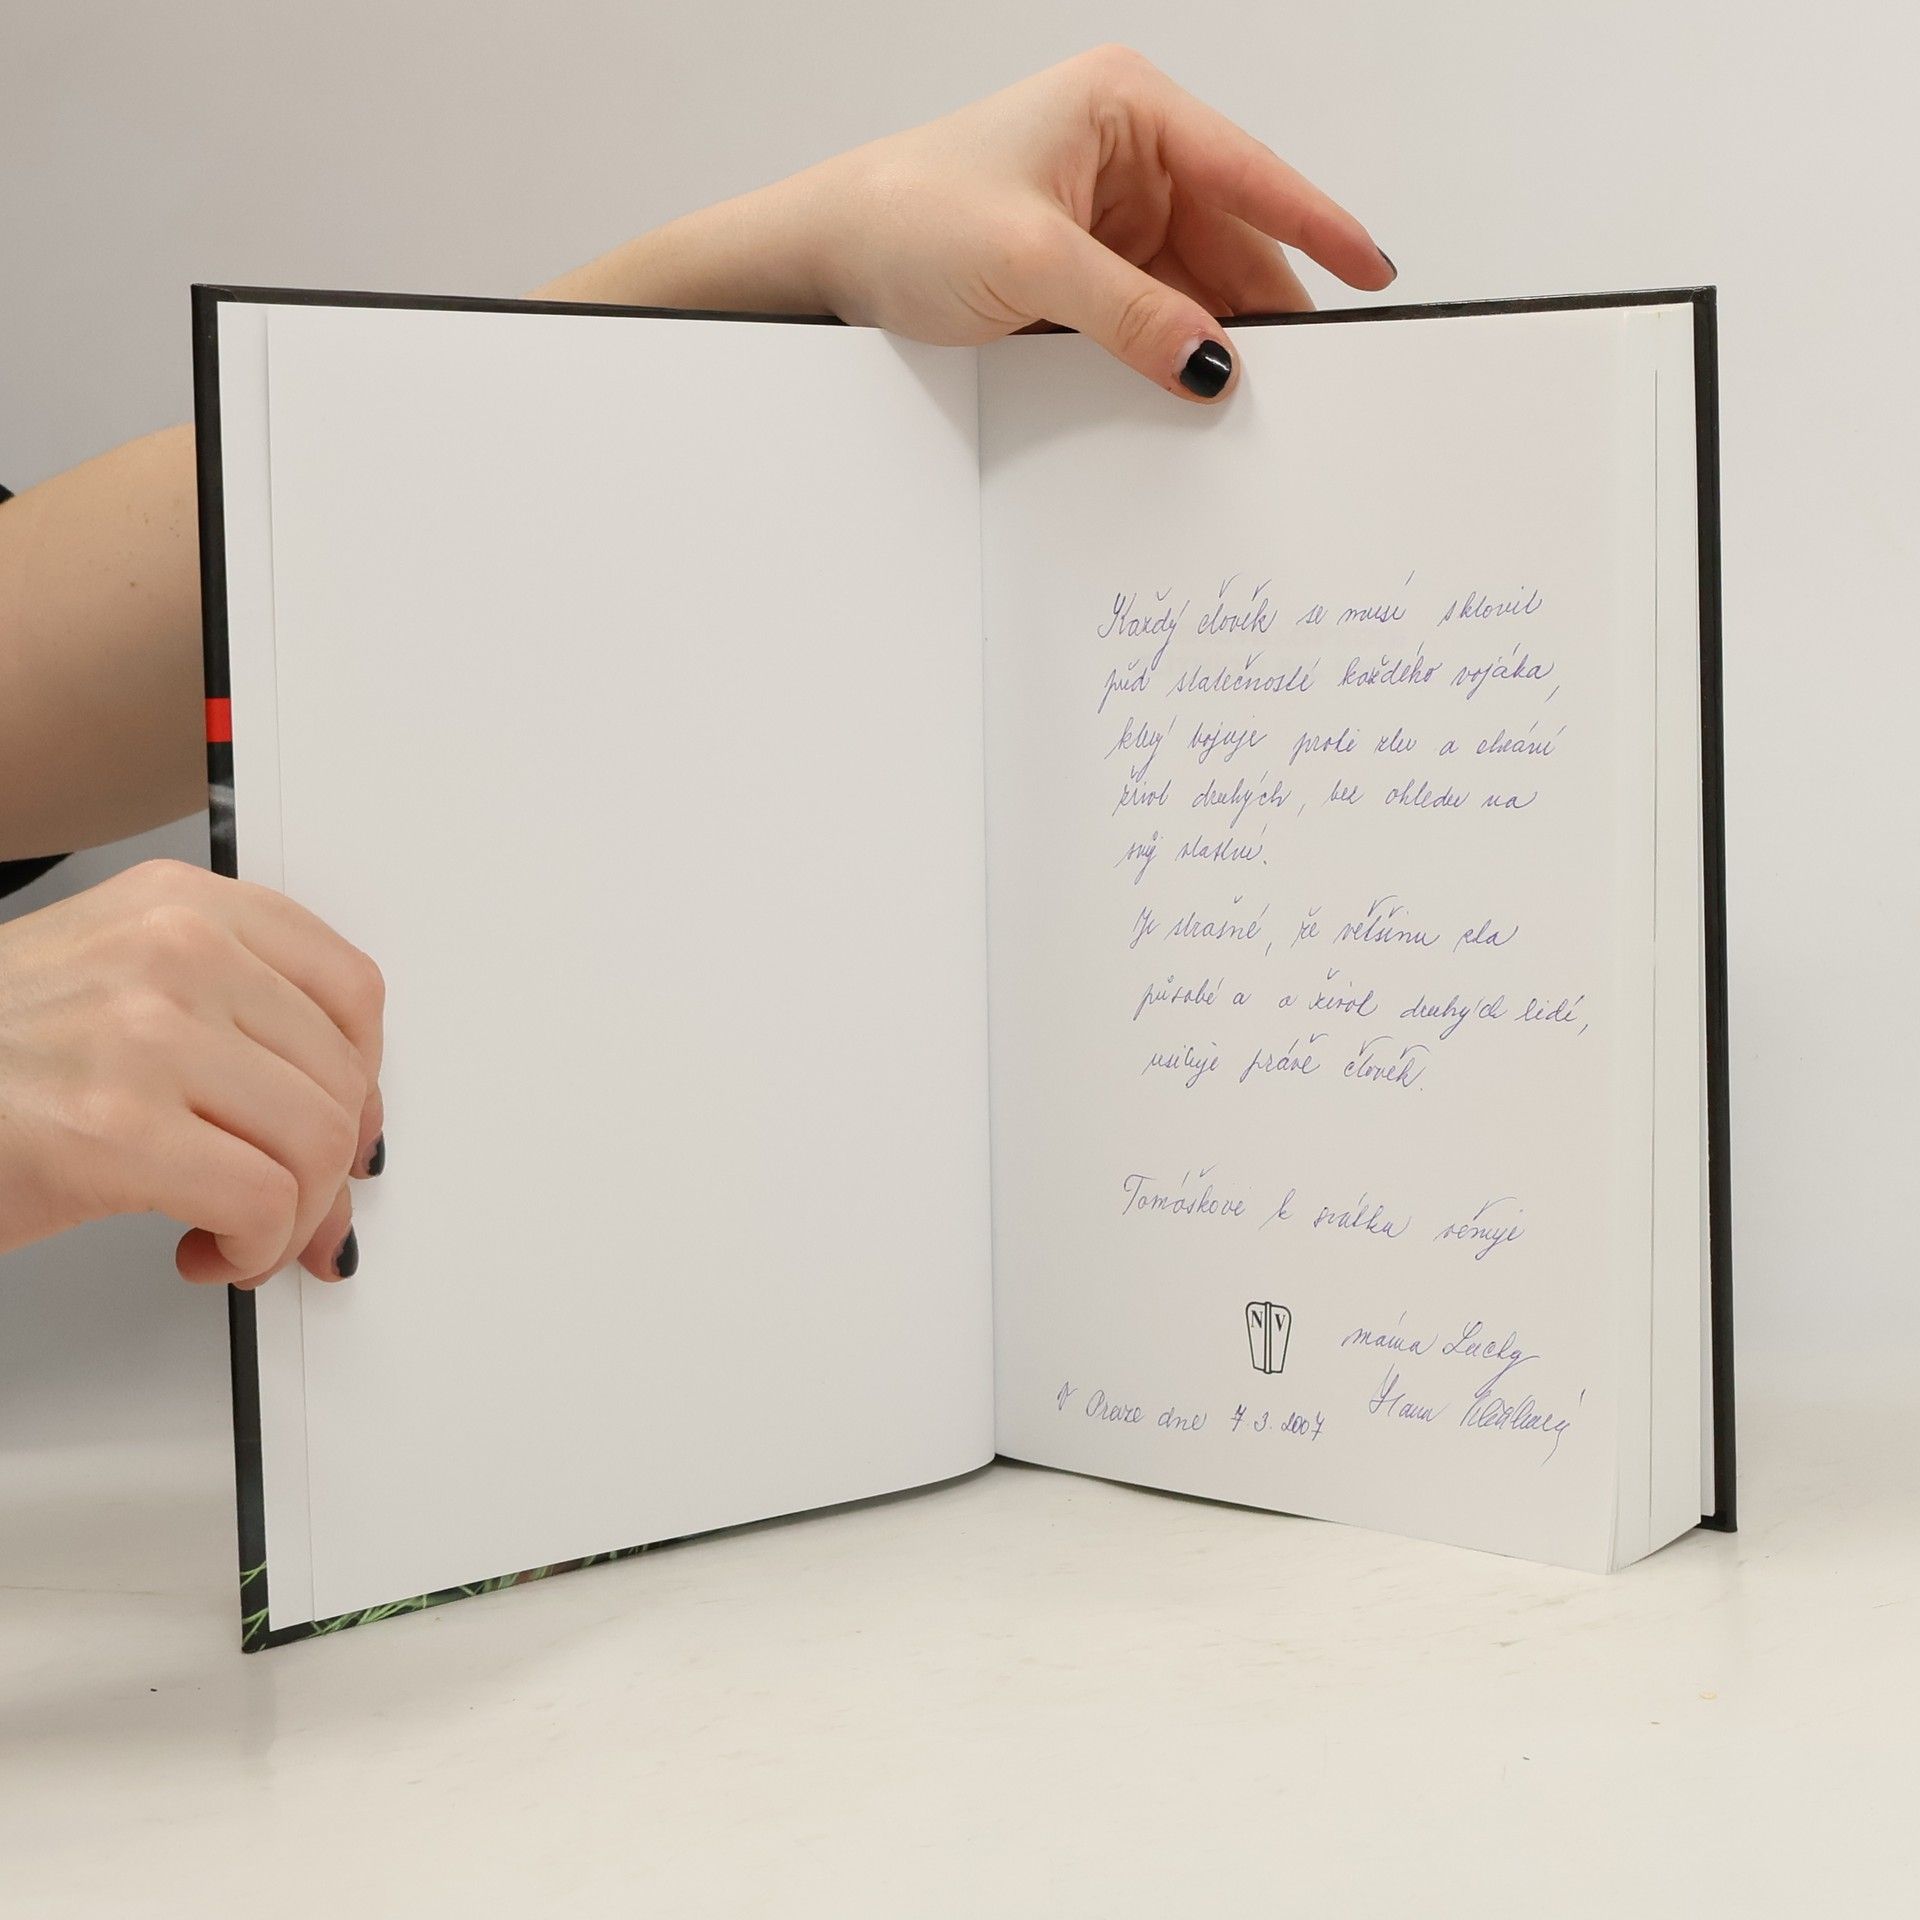 Každý člověk se musí sklonit
před statečností každého vojáka,
který bojuje proti zlu a chrání
život druhých, bez ohledu na
svůj vlastní.
Je strašné, že většinu zla
působí a o život druhých lidí,
usiluje právě člověk.
Tomáškovi k svátku věnuje
N V
máma Lucky
Hana
V Praze dne 7.3.2007